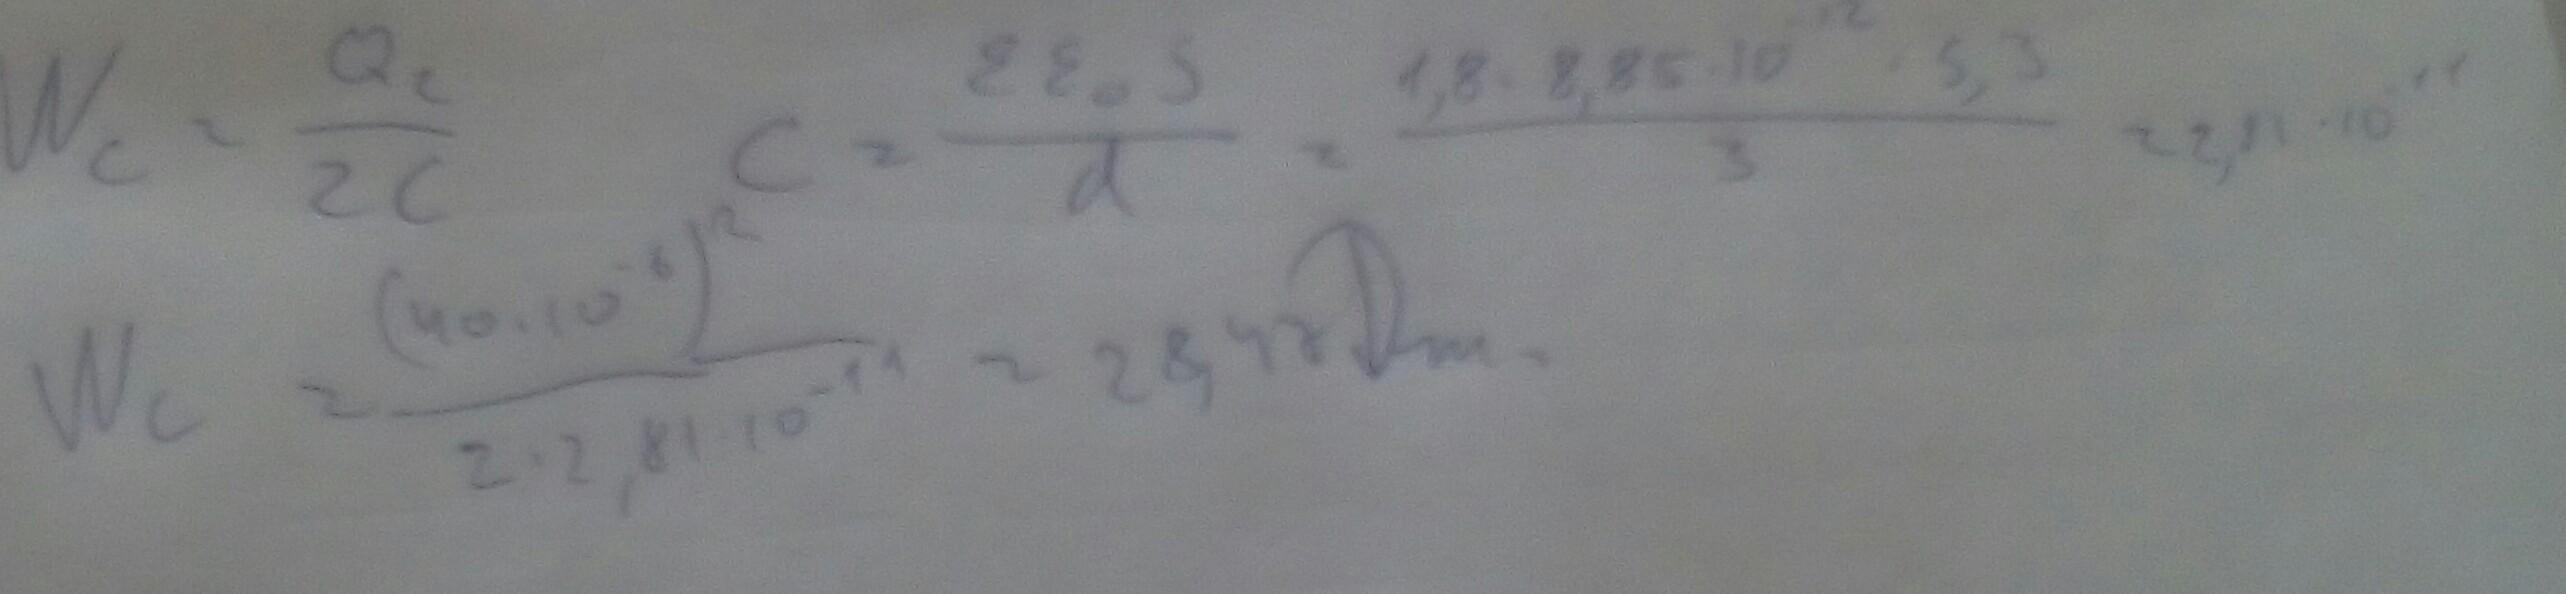 Wc = Q² / 2C   C = εε₀S / d = 1,8 · 8,85 · 10⁻¹² · 5,3 / 3 = 2,81 · 10⁻¹¹
Wc = (40 · 10⁻⁶)² / 2 · 2,81 · 10⁻¹¹ = 28,47 Дж.